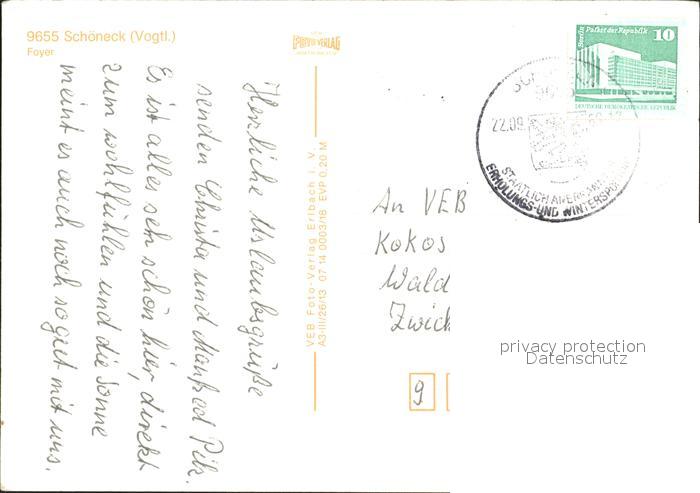 9655 Schöneck (Vogtl.)
Foyer
Herzliche Urlaubsgrüße
senden Christa und Manfred Pilz.
Es ist alles sehr schön hier, direkt
zum wohlfühlen und die Sonne
meint es auch noch so gut mit uns.
FOTO-VERLAG
VEB Foto-Verlag Erlbach i. V.
A3-III/26/13 07 14 0003/18 EVP 0,20 M
Berlin Palast der Republik 10
DEUTSCHE DEMOKRATISCHE REPUBLIK
22.09.
STAATLICH ANERKANNTER
ERHOLUNGS-UND WINTERSPORT
An VEB
Kokos
Wald
Zwick
9
privacy protection
Datenschutz